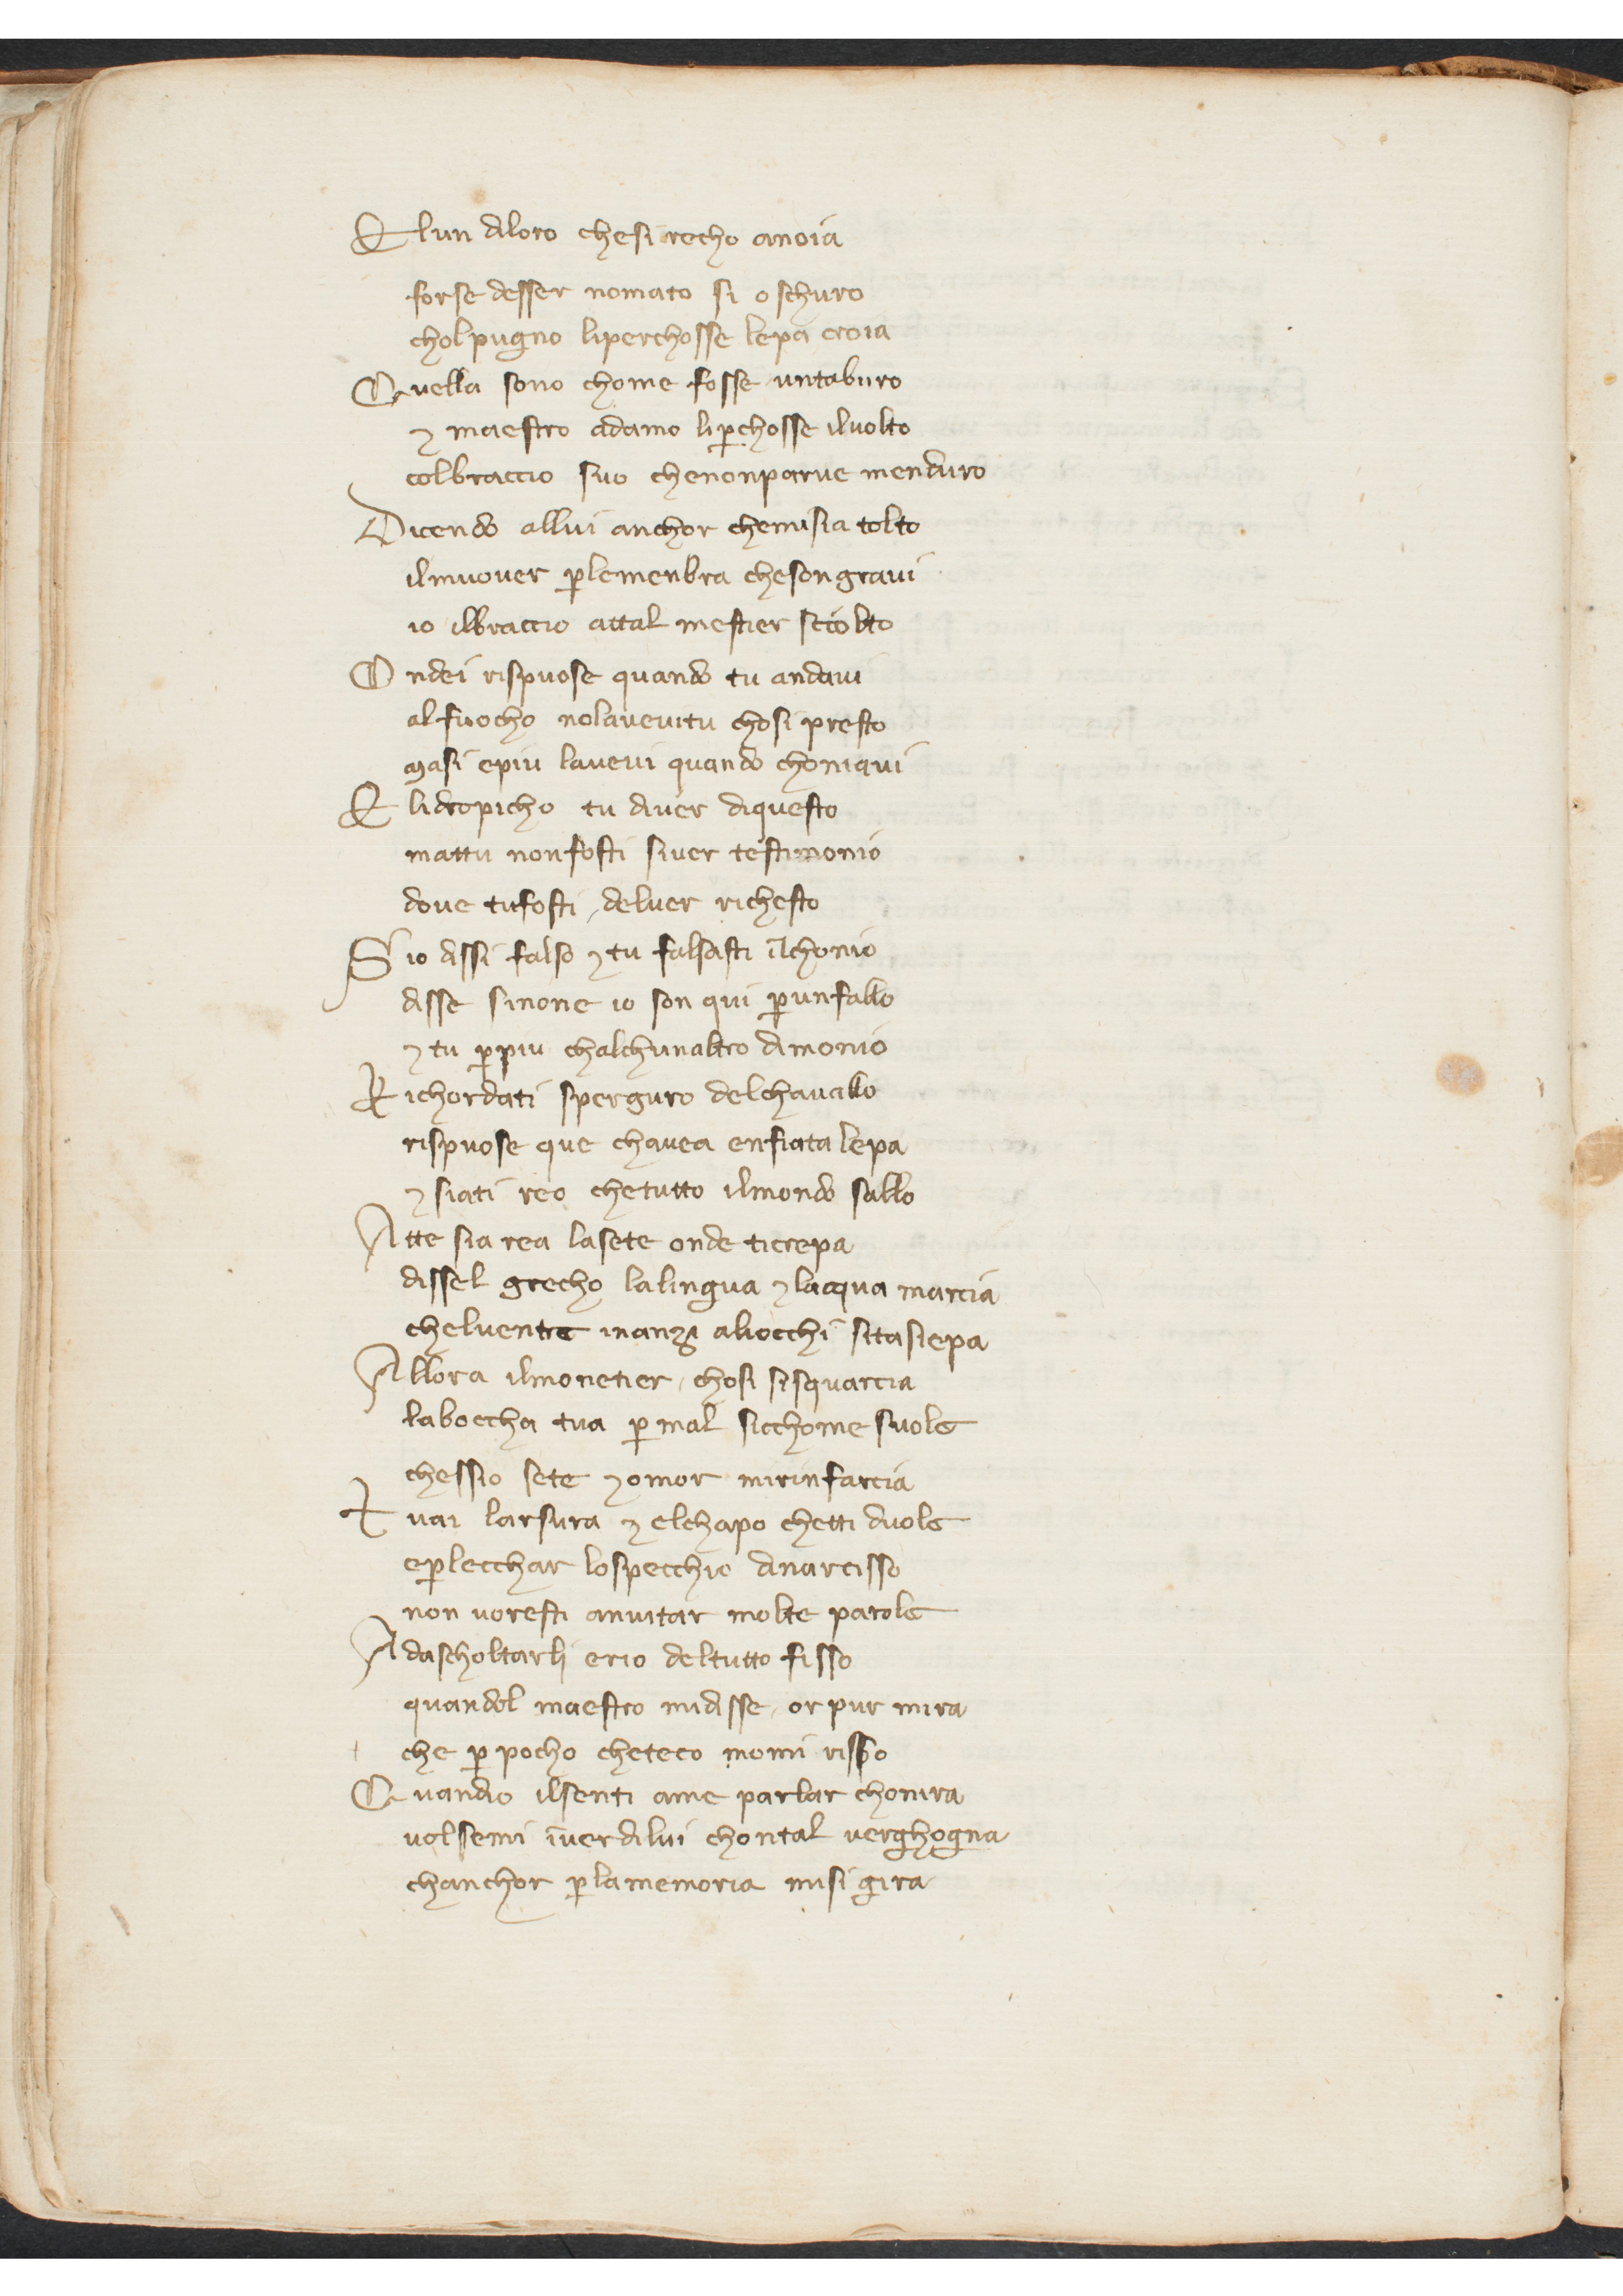 E lun diloro chesi recho anoia
forse desser nomato si oschuro
cholpugno liperchosse lepa croia
Q vella sono chome fosse untaburo
⁊ maestro adamo liꝑchosse iluolto
colbraccio suo chenonparue menduro
D icendo allui anchor chemisia tolto
ilmuouer ꝑlemenbra chesongraui
io ilbraccio attal mestier sciolto
O ndei rispuose quando tu andaui
alfuocho nolaueuitu chosi presto
masi epiu laueui quando choniaui
E lidropicho tu diuer diquesto
mattu nonfosti siuer testimonio
doue tufosti deluer richesto
S io dissi falso ⁊ tu falsasti ilchonio
disse sinone io son qui ꝑunfallo
⁊ tu ꝑpiu chalchunaltro dimonio
R ichordati sperguro delchauallo
rispuose que chauea enfiata lepa
⁊ siati reo chetutto ilmondo sallo
A tte sia rea lasete onde ticrepa
dissel grecho lalingua ⁊ lacqua marcia
cheluentre inanzi aliocchi sitasiepa
A llora ilmonetier chosi sisquarcia
laboccha tua ꝑ mal sicchome suole
chessio sete ⁊ omor mirinfarcia
T uai larsura ⁊ elchapo chetti duole
eꝑlecchar lospecchio dinarcisso
non uoresti anuitar molte parole
A dascholtarli erio deltutto fisso
quandol maestro midisse or pur mira
che ꝑ pocho cheteco nomi risso
Q uandio ilsenti ame parlar chonira
volsemi īuerdilui chontal verghogna
chanchor ꝑlamemoria misi gira